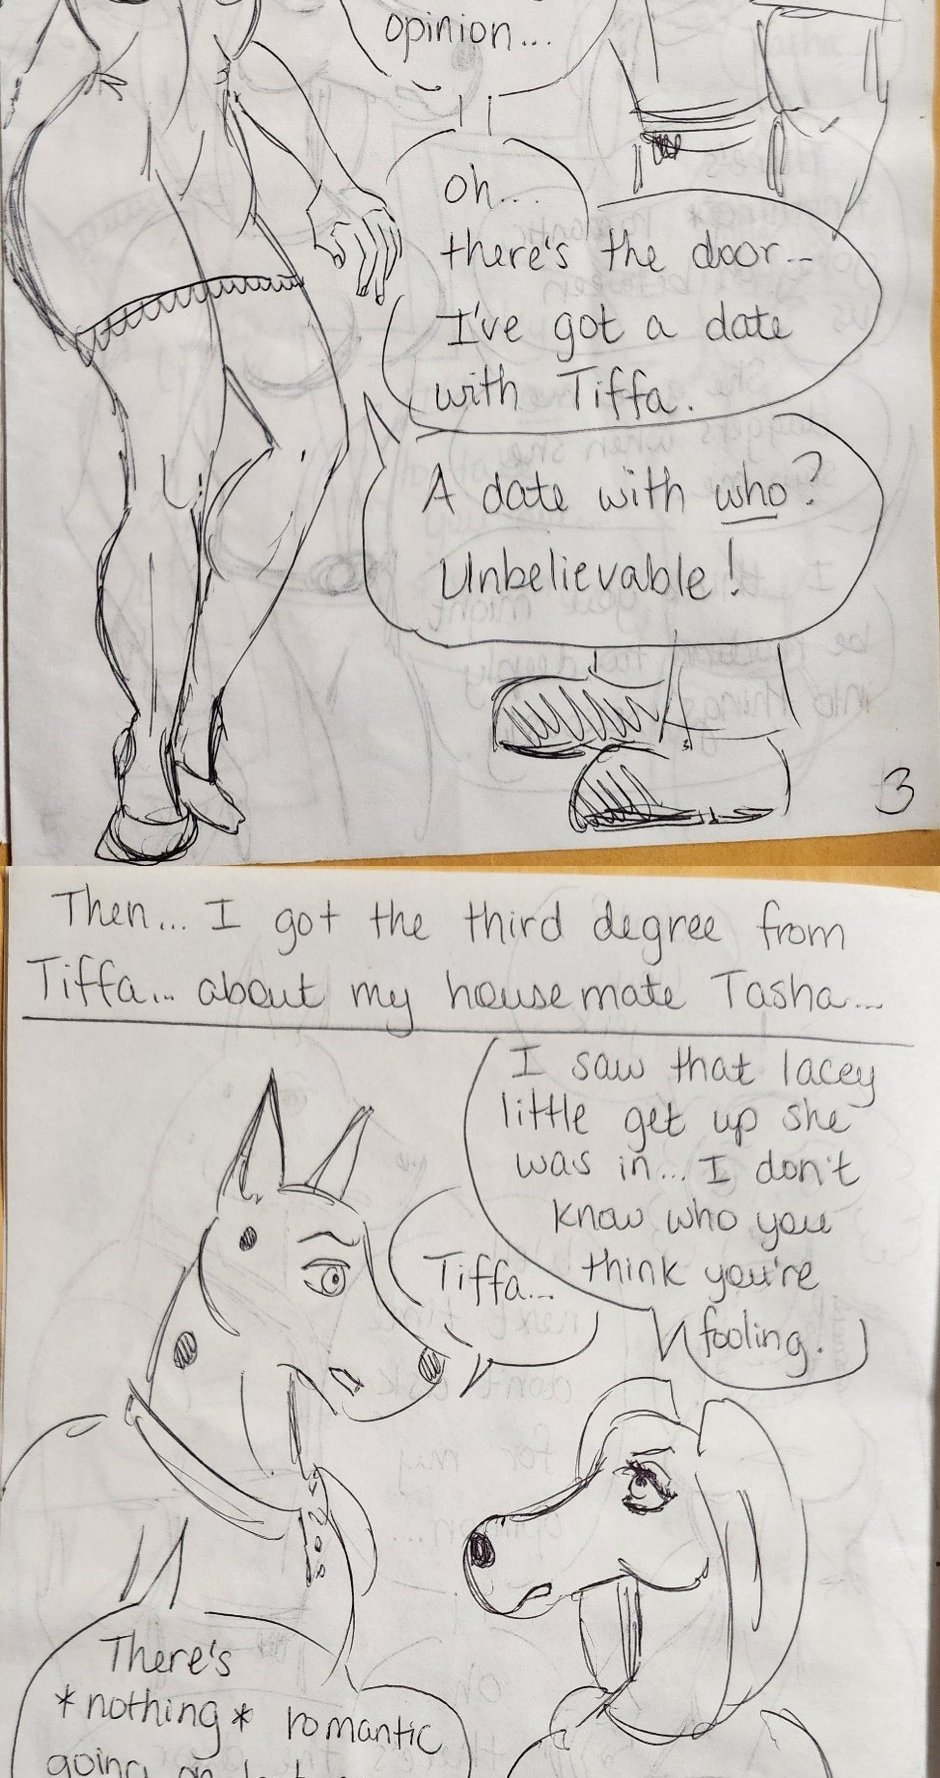 opinion...
oh...
there's the door...
I've got a date
with Tiffa.
A date with who?
Unbelievable!
3
Then... I got the third degree from
Tiffa... about my housemate Tasha...
I saw that lacey
little get up she
was in... I don't
know who you
think you're
fooling.
Tiffa...
There's
*nothing* romantic
going on